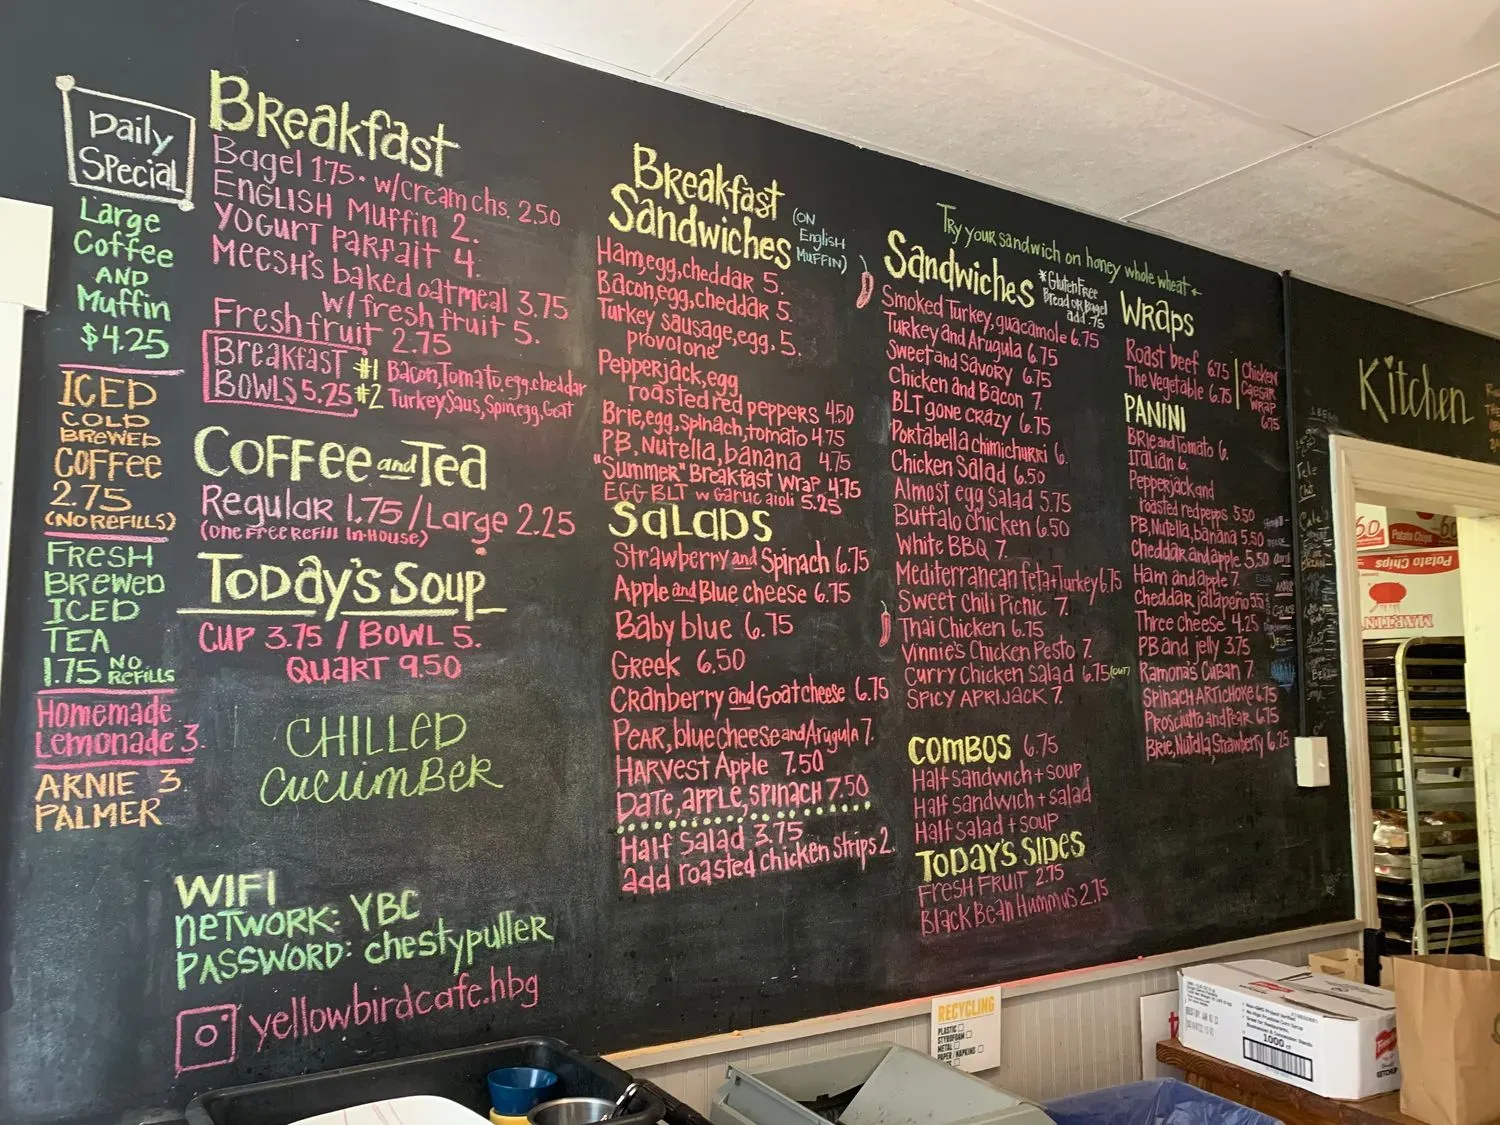 Daily
Special
Large
Coffee
AND
Muffin
$4.25
ICED
COLD
BREWED
COFFEE
2.75
(NO REFILLS)
FRESH
BREWED
ICED
TEA
1.75 NO REFILLS
Homemade
Lemonade 3.
ARNIE 3
PALMER
Breakfast
Bagel 1.75 • w/cream chs. 2.50
ENGLISH Muffin 2.
YOGURT PARFAIT 4.
MEESH'S baked oatmeal 3.75
w/ fresh fruit 5.
Fresh fruit 2.75
Breakfast #1 Bacon, Tomato, egg, cheddar
BOWLS 5.25 #2 Turkey Saus, Spin, egg, Goat
Coffee and Tea
Regular 1.75 / Large 2.25
(One Free Refill In-House)
Today's Soup
CUP 3.75 / BOWL 5.
QUART 9.50
CHILLED
CUCUMBER
WIFI
network: YBC
PASSWORD: chestypuller
yellowbirdcafe.hbg
Breakfast
Sandwiches
(ON
English
MUFFIN)
Ham, egg, cheddar 5.
Bacon, egg, cheddar 5.
Turkey sausage, egg, 5.
provolone
Pepperjack, egg
roasted red peppers 4.50
Brie, egg, spinach, tomato 4.75
PB, Nutella, banana 4.75
"Summer" Breakfast Wrap 4.75
EGG BLT w Garlic aioli 5.25
SALADS
Strawberry and Spinach 6.75
Apple and Blue cheese 6.75
Baby blue 6.75
Greek 6.50
Cranberry and Goat cheese 6.75
PEAR, blue cheese and Arugula 7.
HARVEST Apple 7.50
DATE, apple, spinach 7.50
Half Salad 3.75
add roasted chicken strips 2.
Try your sandwich on honey whole wheat
Sandwiches
*Gluten Free
Bread or Bagel
add .75
Smoked Turkey, guacamole 6.75
Turkey and Arugula 6.75
Sweet and Savory 6.75
Chicken and Bacon 7.
BLT gone crazy 6.75
Portabella chimichurri 6.
Chicken Salad 6.50
Almost egg salad 5.75
Buffalo chicken 6.50
White BBQ 7.
Mediterranean feta+Turkey 6.75
Sweet Chili Picnic 7.
Thai Chicken 6.75
Vinnie's Chicken Pesto 7.
Curry Chicken Salad 6.75 (OUT)
SPICY APRIJACK 7.
COMBOS 6.75
Half sandwich + soup
Half sandwich + salad
Half salad + soup
TODAY'S SIDES
FRESH FRUIT 2.75
Black Bean Hummus 2.75
Wraps
Roast beef 6.75
The Vegetable 6.75
Chicken
Caesar
wrap
6.75
PANINI
BRIE and Tomato 6.
ITALIAN 6.
Pepperjack and
roasted red pepps 5.50
PB, Nutella, banana 5.50
Cheddar and apple 5.50
Ham and apple 7.
Cheddar jalapeño 5.5
Three cheese 4.25
PB and jelly 3.75
Ramona's Cuban 7.
Spinach Artichoke 6.75
Prosciutto and Pear 6.75
Brie, Nutella, Strawberry 6.25
Kitchen
60
Potato Chips
Potato Chips
MARTIN'
RECYCLING
PLASTIC
STYROFOAM
METAL
PAPER/NAPKINS
1000
KETCHUP